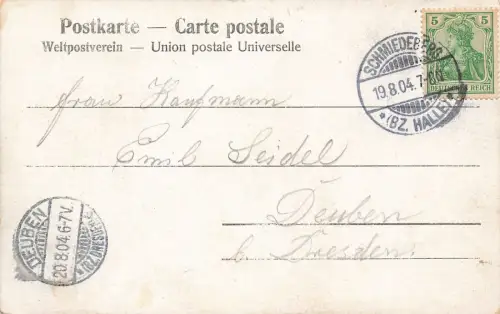 Postkarte — Carte postale
Weltpostverein — Union postale Universelle
5 5
DEUTSCHES REICH
SCHMIEDEBERG
19.8.04.7-8N.
*(BZ. HALLE)*
Frau Kaufmann
Emil Seidel
Deuben
b. Dresden.
DEUBEN
20.8.04.6-7V.
(BZ.DRESDEN)